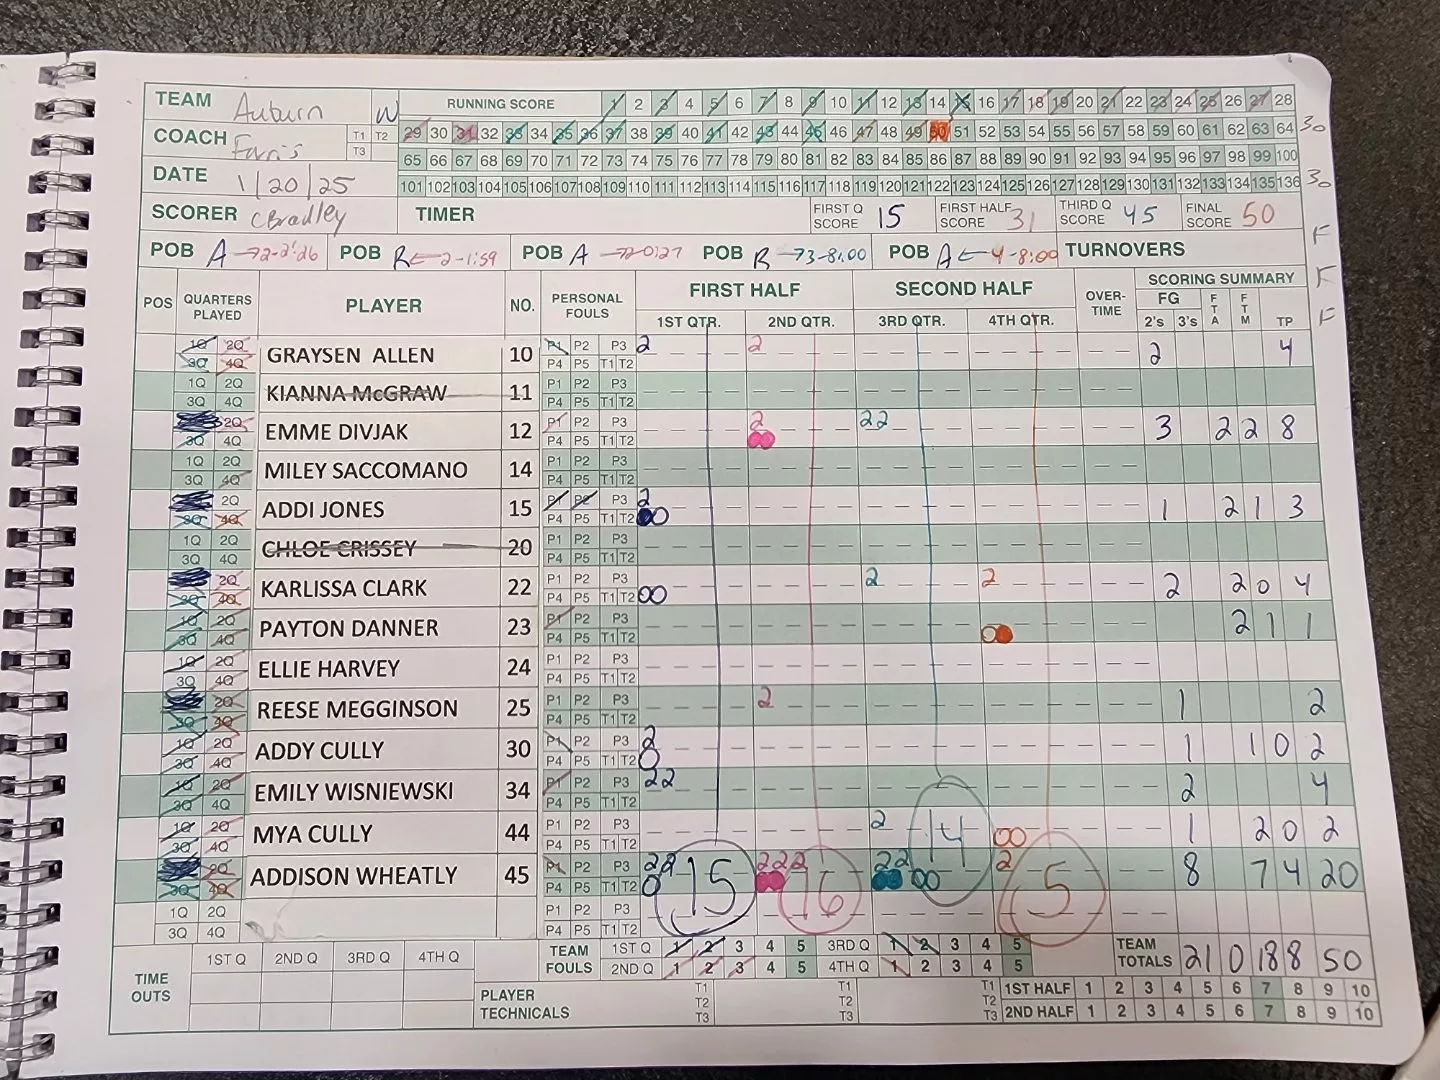 TEAM Auburn W RUNNING SCORE 1 2 3 4 5 6 7 8 9 10 11 12 13 14 15 16 17 18 19 20 21 22 23 24 25 26 27 28
COACH Farris T1 T2 T3 29 30 31 32 33 34 35 36 37 38 39 40 41 42 43 44 45 46 47 48 49 50 51 52 53 54 55 56 57 58 59 60 61 62 63 64 30
65 66 67 68 69 70 71 72 73 74 75 76 77 78 79 80 81 82 83 84 85 86 87 88 89 90 91 92 93 94 95 96 97 98 99 100
DATE 1/20/25 101 102 103 104 105 106 107 108 109 110 111 112 113 114 115 116 117 118 119 120 121 122 123 124 125 126 127 128 129 130 131 132 133 134 135 136 30
SCORER CBradley TIMER FIRST Q SCORE 15 FIRST HALF SCORE 31 THIRD Q SCORE 45 FINAL SCORE 50
F
POB A →2-2:26 POB R ← 2-1:59 POB A →2 0:27 POB R →3-8:00 POB A ← 4-8:00 TURNOVERS
F
POS QUARTERS PLAYED PLAYER NO. PERSONAL FOULS FIRST HALF SECOND HALF OVER-TIME SCORING SUMMARY
1ST QTR. 2ND QTR. 3RD QTR. 4TH QTR. FG 2's 3's FTA FTM TP
F
1Q 2Q 3Q 4Q GRAYSEN ALLEN 10 P1 P2 P3 P4 P5 T1 T2 2 2 2 4
1Q 2Q 3Q 4Q KIANNA McGRAW 11 P1 P2 P3 P4 P5 T1 T2
2Q 3Q 4Q EMME DIVJAK 12 P1 P2 P3 P4 P5 T1 T2 2 22 3 2 2 8
1Q 2Q 3Q 4Q MILEY SACCOMANO 14 P1 P2 P3 P4 P5 T1 T2
2Q 3Q 4Q ADDI JONES 15 P1 P2 P3 P4 P5 T1 T2 2 1 2 1 3
1Q 2Q 3Q 4Q CHLOE CRISSEY 20 P1 P2 P3 P4 P5 T1 T2
2Q 3Q 4Q KARLISSA CLARK 22 P1 P2 P3 P4 P5 T1 T2 2 2 2 2 0 4
1Q 2Q 3Q 4Q PAYTON DANNER 23 P1 P2 P3 P4 P5 T1 T2 2 1 1
1Q 2Q 3Q 4Q ELLIE HARVEY 24 P1 P2 P3 P4 P5 T1 T2
2Q 3Q 4Q REESE MEGGINSON 25 P1 P2 P3 P4 P5 T1 T2 2 1 2
1Q 2Q 3Q 4Q ADDY CULLY 30 P1 P2 P3 P4 P5 T1 T2 2 1 1 0 2
1Q 2Q 3Q 4Q EMILY WISNIEWSKI 34 P1 P2 P3 P4 P5 T1 T2 22 2 4
1Q 2Q 3Q 4Q MYA CULLY 44 P1 P2 P3 P4 P5 T1 T2 2 14 1 2 0 2
2Q 3Q 4Q ADDISON WHEATLY 45 P1 P2 P3 P4 P5 T1 T2 22 15 222 16 22 2 5 8 7 4 20
1Q 2Q 3Q 4Q P1 P2 P3 P4 P5 T1 T2
TIME OUTS 1ST Q 2ND Q 3RD Q 4TH Q TEAM FOULS 1ST Q 1 2 3 4 5 3RD Q 1 2 3 4 5 TEAM TOTALS 21 0 18 8 50
2ND Q 1 2 3 4 5 4TH Q 1 2 3 4 5
PLAYER TECHNICALS T1 T2 T3 T1 T2 T3 T1 T2 T3 1ST HALF 1 2 3 4 5 6 7 8 9 10
2ND HALF 1 2 3 4 5 6 7 8 9 10